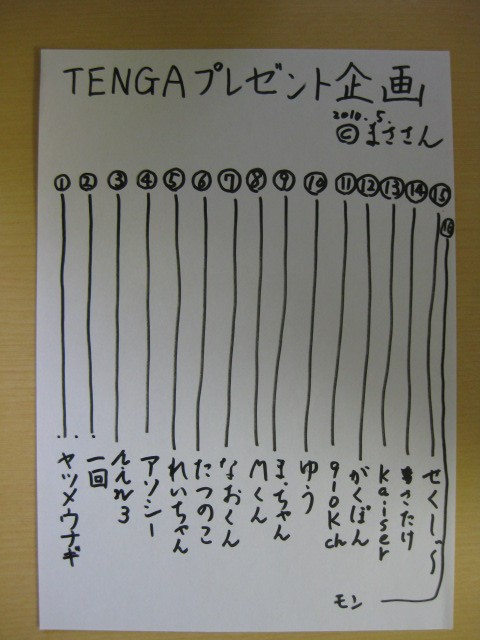 TENGAプレゼント企画
2010.5.
©まささん
① ② ③ ④ ⑤ ⑥ ⑦ ⑧ ⑨ ⑩ ⑪ ⑫ ⑬ ⑭ ⑮
⑯
ヤツメウナギ
一回
アソシー
れいちゃん
たつのこ
なおくん
Mくん
まちゃん
ゆう
9-10Kch
がくぽん
kaiser
さたけ
せくし〜
モン